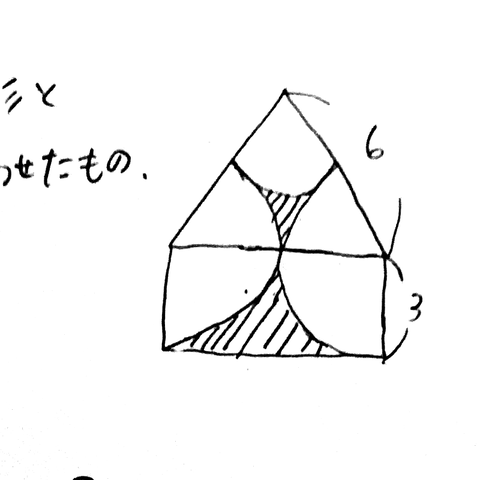 形と
わせたもの.
6
3